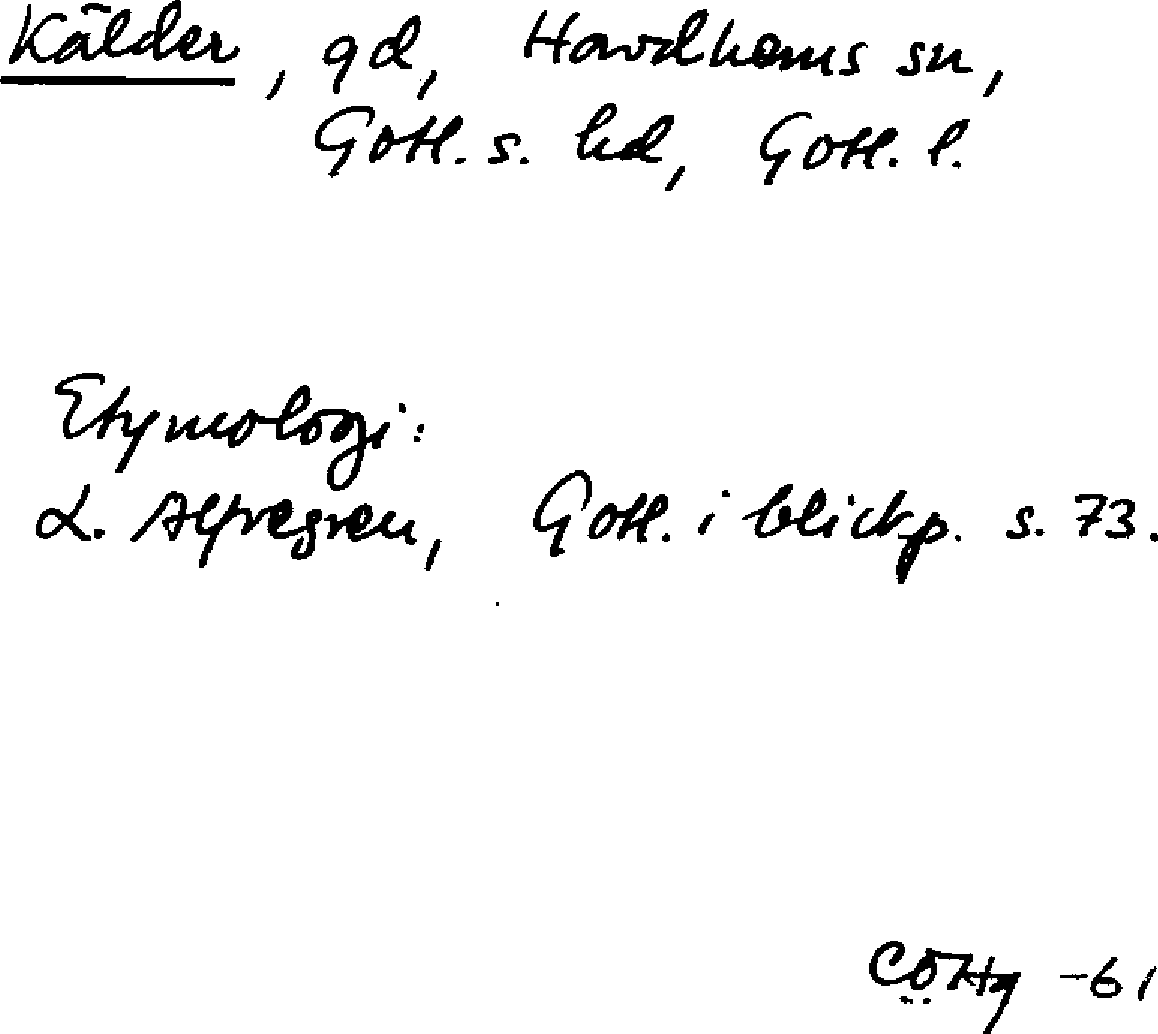 Källder, gd, Havdhems sn,
Gotl. s. hd, Gotl. l.
Etymologi:
L. Alfvegren, Gotl. i blickp. s. 73.
CÖHg -61